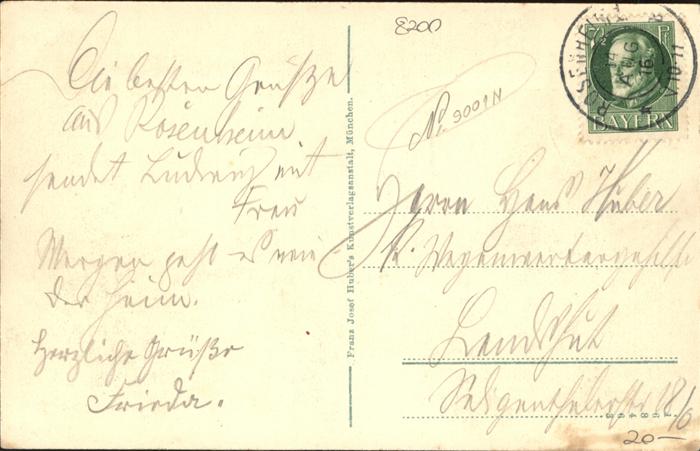 8200
Die besten Grüße
aus Rosenheim
sendet Ludwig mit
Frau
Morgen geht es wie
der heim.
Herzliche Grüße
Frieda.
Franz Josef Huber's Kunstverlagsanstalt, München.
No 9001N
ROSENHEIM
14 AUG 16
V.10-11
7½ PF
BAYERN
Herrn Hans Huber
K.
Landshut
Seligenthalerstr 18/0
20—